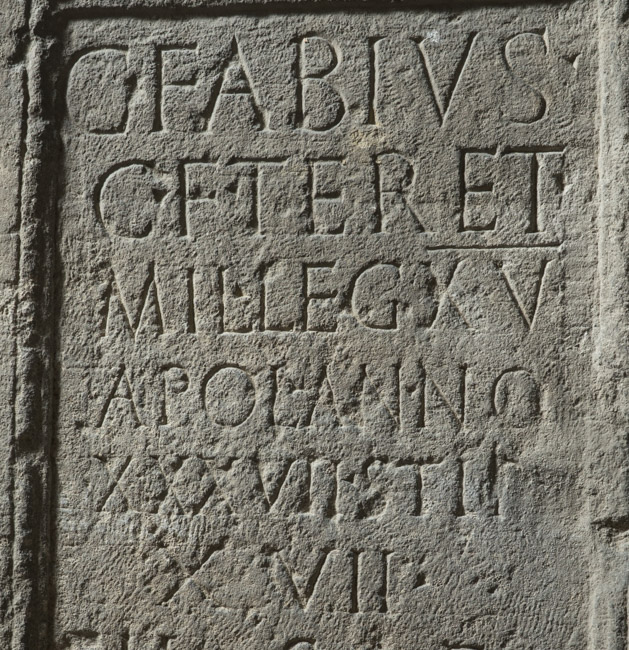 C FABIVS
C F TER ET
MIL LEG XV
APOL ANNO
XXVII STIP
XVII